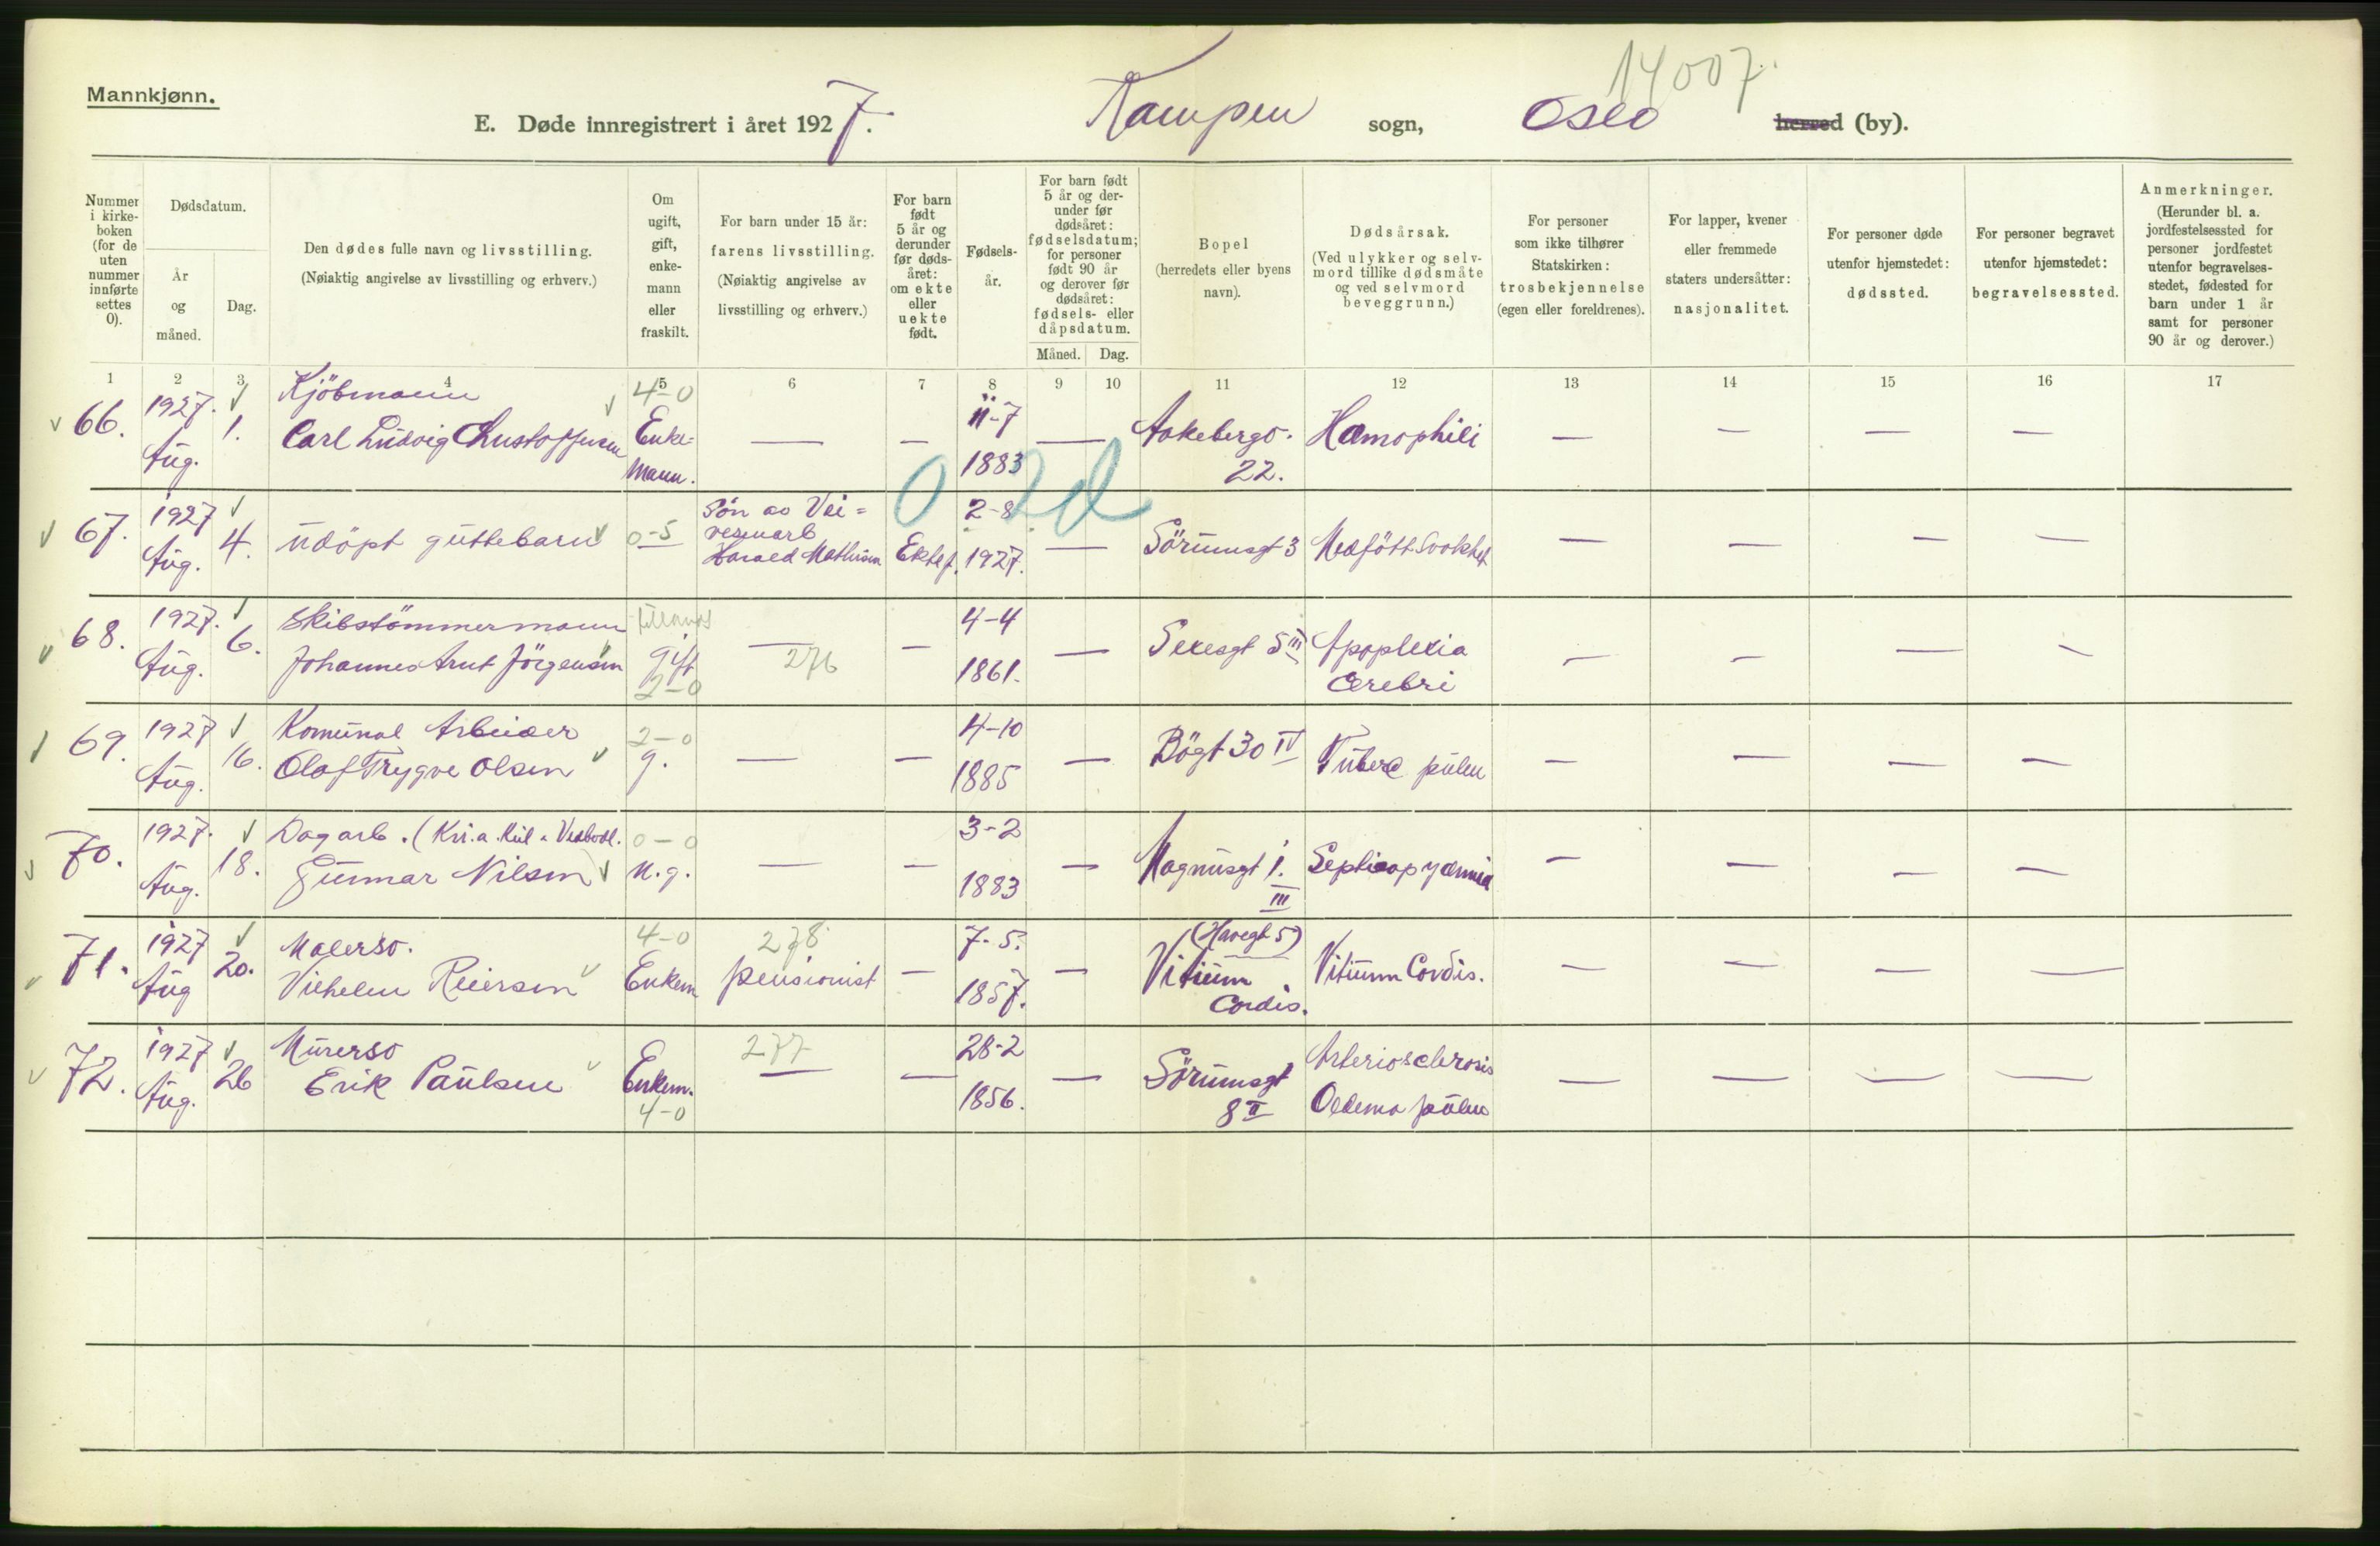 Mannkjønn.
14007.
E. Døde innregistrert i året 1927. Kampen sogn, Oslo herred (by).
Nummer i kirkeboken (for de uten nummer innførte settes 0).
Dødsdatum.
År og måned.
Dag.
Den dødes fulle navn og livsstilling.
(Nøiaktig angivelse av livsstilling og erhverv.)
Om ugift, gift, enkemann eller fraskilt.
For barn under 15 år: farens livsstilling.
(Nøiaktig angivelse av livsstilling og erhverv.)
For barn født 5 år og derunder før dødsåret: om ekte eller uekte født.
Fødselsår.
For barn født 5 år og derunder før dødsåret: fødselsdatum; for personer født 90 år og derover før dødsåret: fødsels- eller dåpsdatum.
Måned. Dag.
Bopel
(herredets eller byens navn).
Dødsårsak.
(Ved ulykker og selvmord tillike dødsmåte og ved selvmord beveggrunn.)
For personer som ikke tilhører Statskirken: trosbekjennelse (egen eller foreldrenes).
For lapper, kvener eller fremmede staters undersåtter: nasjonalitet.
For personer døde utenfor hjemstedet: dødssted.
For personer begravet utenfor hjemstedet: begravelsessted.
Anmerkninger.
(Herunder bl. a. jordfestelsessted for personer jordfestet utenfor begravelsesstedet, fødested for barn under 1 år samt for personer 90 år og derover.)
1 2 3 4 5 6 7 8 9 10 11 12 13 14 15 16 17
66. 1927. Aug. 1. Kjöbmann 4-0
Carl Ludvig Enkemann. — — 11-7 1883 — Aakebergv. 22. Hæmophili — — — —
67. 1927 Aug. 4. Udöpt guttebarn 0-5 Søn av Veivesenarb Harald Mathisen Ektef. 2-8 1927. — Sörumsgt 3 Medfött Svakhet — — — —
68. 1927. Aug. 6. Skibstömmermann
Johannes Arnt Jörgensen gift 2-0 — 276 — 4-4 1861. — Sexesgt 5 III Apoplexia Cerebri — — — —
69. 1927 Aug. 16. Komunal Arbeider 2-0
Olaf Trygve Olsen g. — — 4-10 1885 — Bögt 30 IV Tuberc pulm — — — —
70. 1927. Aug. 18. Dagarb. (Kri.a. Kul & Vedbodl. 0-0
Gunnar Nilsen u.g. — — 3-2 1883 — Magnusgt 1. III Septicopyæmia — — — —
71. 1927 Aug 20. Malersv. 4-0 278
Vilhelm Reiersen Enkem pensionist — 7-5. 1857. — (Havegt 5) Vitium Cordis. Vitium Cordis. — — — —
72. 1927 Aug. 26 Murersv 277
Erik Paulsen Enkem. 4-0 — — 28-2 1856. — Sörumsgt 8 II Arteriosclerosis Oedema pulm — — — —